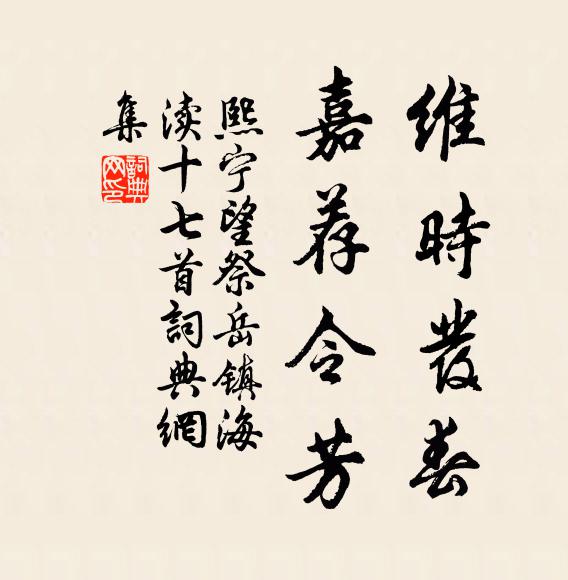 維時發春
嘉荐令芳
熙宁望祭岳镇海
渎十七首詞典網
集
詞典
网印